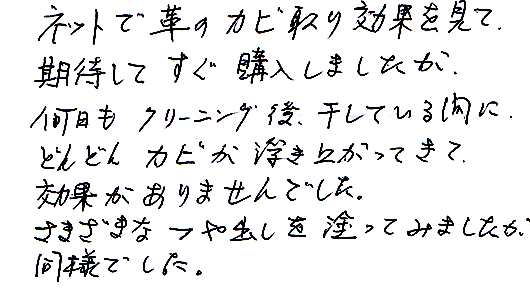 ネットで革のカビ取り効果を見て、
期待してすぐ購入しましたが、
何日もクリーニング後、干している間に、
どんどんカビが浮き上がってきて、
効果がありませんでした。
さまざまなつや出しを塗ってみましたが、
同様でした。